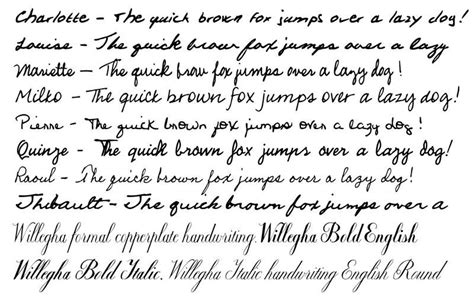 Charlotte - The quick brown fox jumps over a lazy dog!
Louise - The quick brown fox jumps over a lazy
Mariette - The quick brow fox jumps over a lazy dog!
Milko - The quick brown fox jumps over a lazy dog!
Pierre - The quick brown fox jumps over a lazy dog!
Quinze - The quick brown fox jumps over a lazy dog!
Raoul - The quick brown fox jumps over a lazy dog!
Thibault - The quick brown fox jumps over a
Willegha formal copperplate handwriting. Willegha Bold English
Willegha Bold Italic. Willegha Italic handwriting English Round